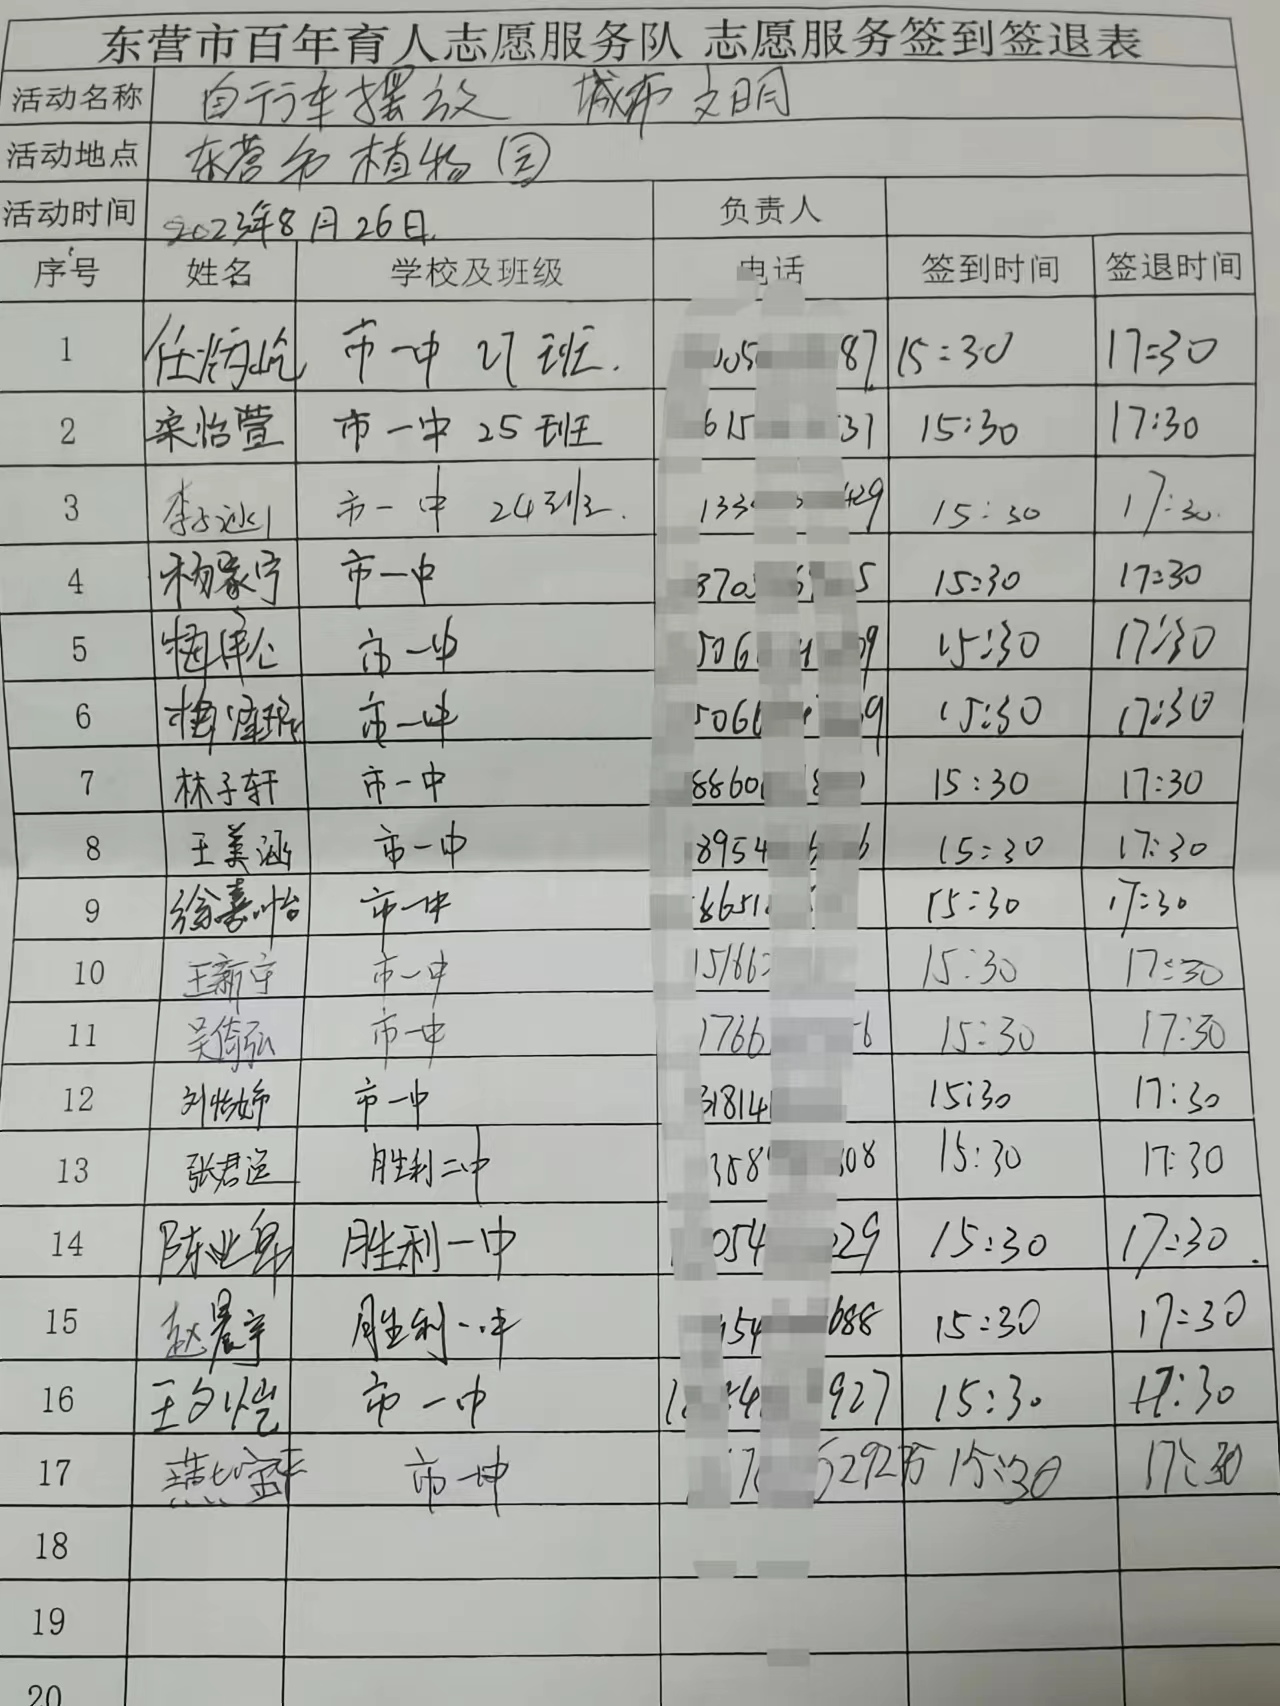 东营市百年育人志愿服务队 志愿服务签到签退表
活动名称 自行车摆放 城市文明
活动地点 东营市植物园
活动时间 2023年8月26日. 负责人
序号 姓名 学校及班级 电话 签到时间 签退时间
1 市一中 27班. 87 15:30 17:30
2 栾怡萱 市一中 25班 615 31 15:30 17:30
3 市一中 24班. 133 429 15:30 17:30.
4 杨家宁 市一中 370 5 15:30 17:30
5 市一中 506 09 15:30 17:30
6 市一中 506 9 15:30 17:30
7 林子轩 市一中 8860 15:30 17:30
8 王美涵 市一中 8954 6 15:30 17:30
9 徐嘉怡 市一中 8651 15:30 17:30
10 王新宇 市一中 15186 15:30 17:30
11 吴倚弘 市一中 1766 6 15:30 17:30
12 市一中 31814 15:30 17:30
13 胜利二中 358 308 15:30 17:30
14 胜利一中 054 029 15:30 17:30.
15 赵晨宇 胜利一中 54 688 15:30 17:30
16 王文恺 市一中 927 15:30 17:30
17 市一中 292 15:30 17:30
18
19
20